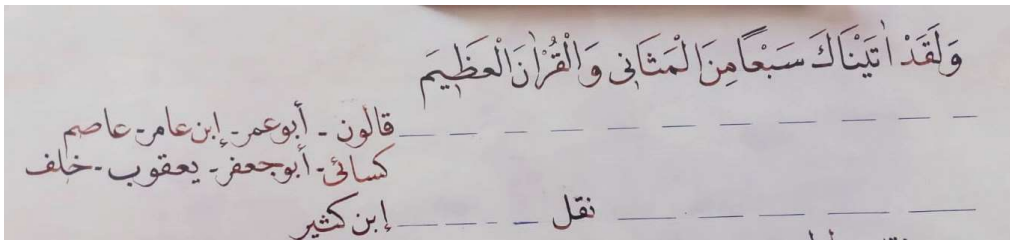 وَلَقَدْ اٰتَيْنَاكَ سَبْعًا مِنَ الْمَثَانٖى وَالْقُرْاٰنَ الْعَظٖيمَ
قالون - أبوعمر - إبن عامر - عاصم
كسائى - أبوجعفر - يعقوب - خلف
نقل إبن كثير